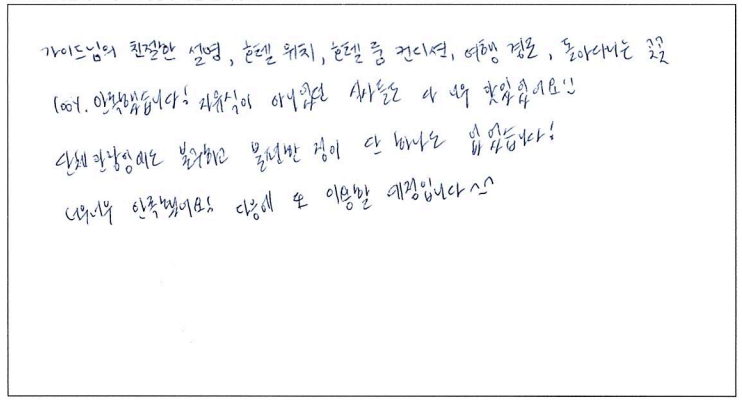 가이드님의 친절한 설명, 호텔 위치, 호텔 룸 컨디션, 여행 경로, 돌아다니는 곳곳
100%. 만족했습니다! 자유식이 아니었던 식사들도 다 너무 맛있었어요!!
단체관광임에도 불구하고 불편한 점이 단 하나도 없었습니다!
너무너무 만족했어요! 다음에 또 이용할 예정입니다^^